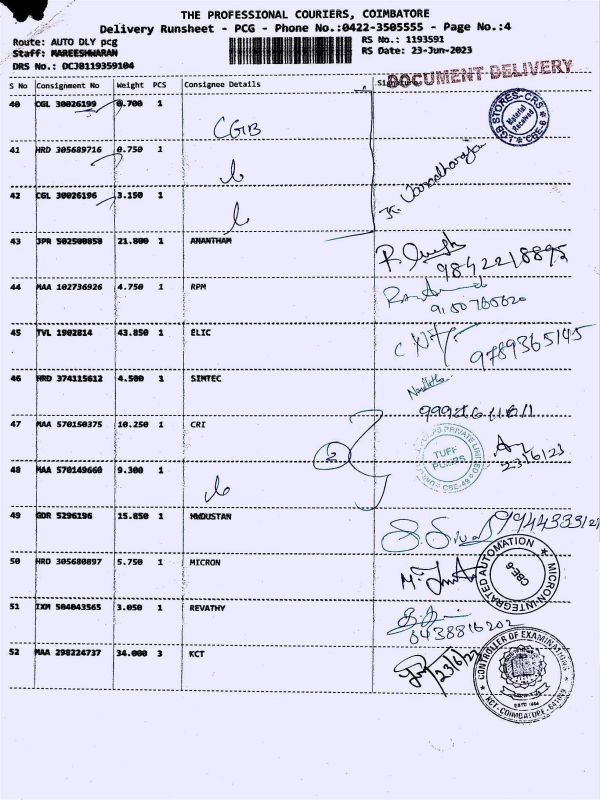 THE PROFESSIONAL COURIERS, COIMBATORE
Delivery Runsheet - PCG - Phone No.:0422-3505555 - Page No.:4
Route: AUTO DLY pcg
RS No.: 1193591
Staff: MAREESHWARAN
RS Date: 23-Jun-2023
DRS No.: DCJB119359104
DOCUMENT DELIVERY
S No Consignment No Weight PCS Consignee Details Signature
40 CGL 30026199 0.700 1 CGIB
STORES-CRS Material Received
41 HRD 305689716 0.750 1
42 CGL 30026196 3.150 1
43 JPR 502500858 21.800 1 ANANTHAM
9842218895
44 MAA 102736926 4.750 1 RPM
45 TVL 1902814 43.850 1 ELIC
9789365145
46 HRD 374115612 4.500 1 SIMTEC
47 MAA 570150375 10.250 1 CRI
TUFF
23/6/23
2
48 MAA 570149660 9.300 1
49 GDR 5296196 15.850 1 HWDUSTAN
50 HRD 305680897 5.750 1 MICRON
MICRON-INTEGRATED AUTOMATION
51 IXM 504043565 3.050 1 REVATHY
8438816202
52 MAA 298224737 34.000 3 KCT
23/6/23
CONTROLLER OF EXAMINATIONS